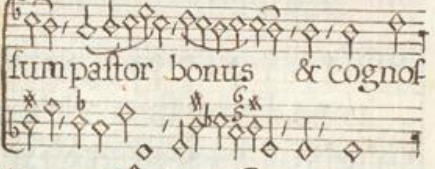 ſum paſtor bonus & cognoſ
6
5